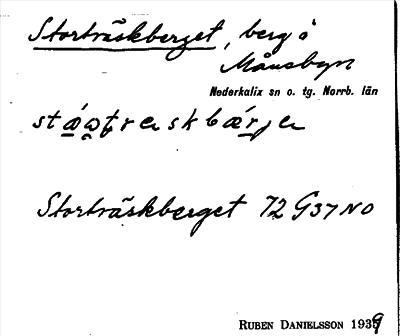 Storträskberget, berg å
Månsbyn
Nederkalix sn o. tg. Norrb. län
Storträskberget 72 G37 NO
RUBEN DANIELSSON 1939